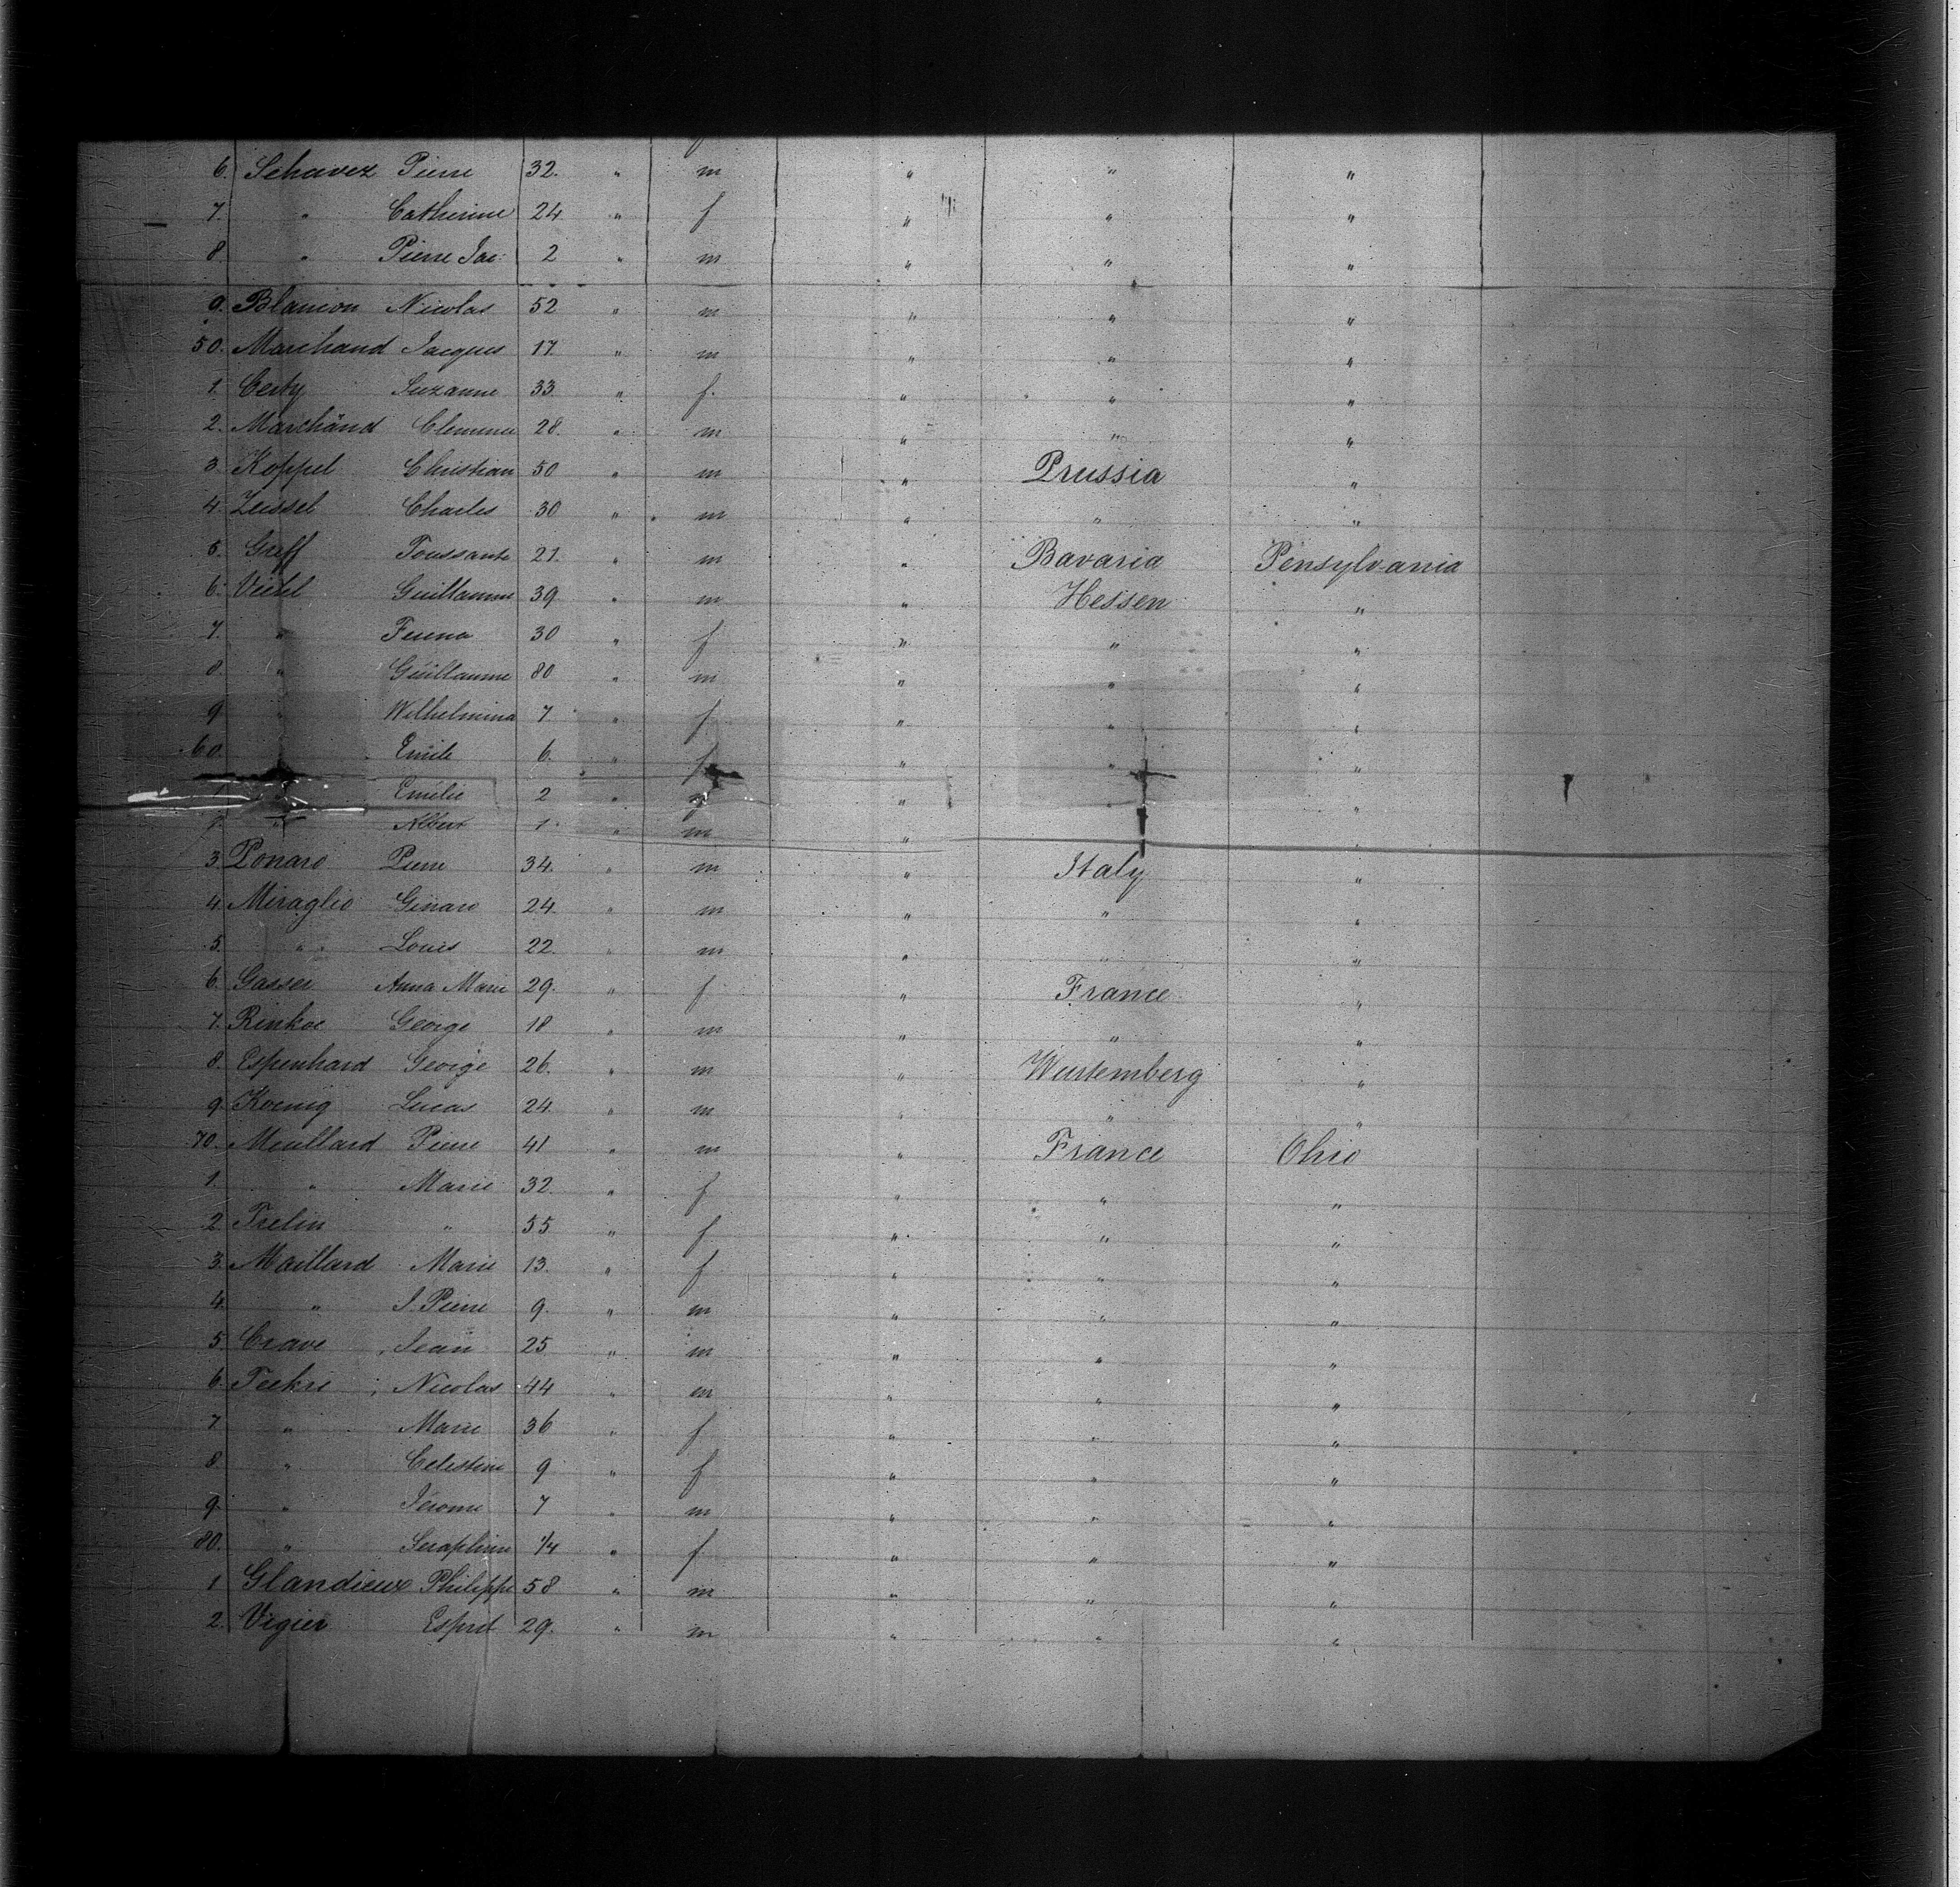 6. Schavez Pierre 32. " m " " "
7. " Catherine 24 " f " " "
8 " Pierre Jac: 2 " m " " "
9. Blancon Nicolas 52 " m " " "
50. Marchand Jacques 17. " m " " "
1. Certy Suzanne 33 " f. " " "
2. Marchand 28. " m " " "
3. Koppel Christian 50 " m " Prussia "
4. Zeissel Charles 30 " m " " "
5. Greff Toussante 21. " m " Bavaria Pensylvania
6. Veitel Guillaume 39 " m " Hessen "
7. " 30 " f " " "
8. " Guillaume 80 " m " " "
9 " Wilhelmina 7 " f " " "
60. Emile 6. " f " " "
1 Emilie 2 " " " "
" Albert 1. " m " "
3. Ponaro Pierre 34. " m " Italy "
4. Miraglio Genaro 24. " m " " "
5. " Louis 22. " m " " "
6. Gasser Anna Marie 29. " f " France "
7. Rinkoe George 18 " m " " "
8. Espenhard George 26. " m " Wurtemberg "
9. Koenig Lucas 24. " m " " "
70. Meullard Pierre 41 " m " France Ohio
1. " Marie 32. " f " " "
2 Frelin " 55 " f " " "
3. Maillard Marie 13. " f " " "
4. " J. Pierre 9. " m " " "
5. Crave Jean 25 " m " " "
6. Nicolas 44 " m " " "
7. " Marie 36 " f " " "
8. " Celestine 9 " f " " "
9. " Jérome 7 " m " " "
80. " Seraphine 1/4 " f " " "
1 Glandieux Philippe 58 " m " " "
2. Vigier Esprit 29. " m " " "